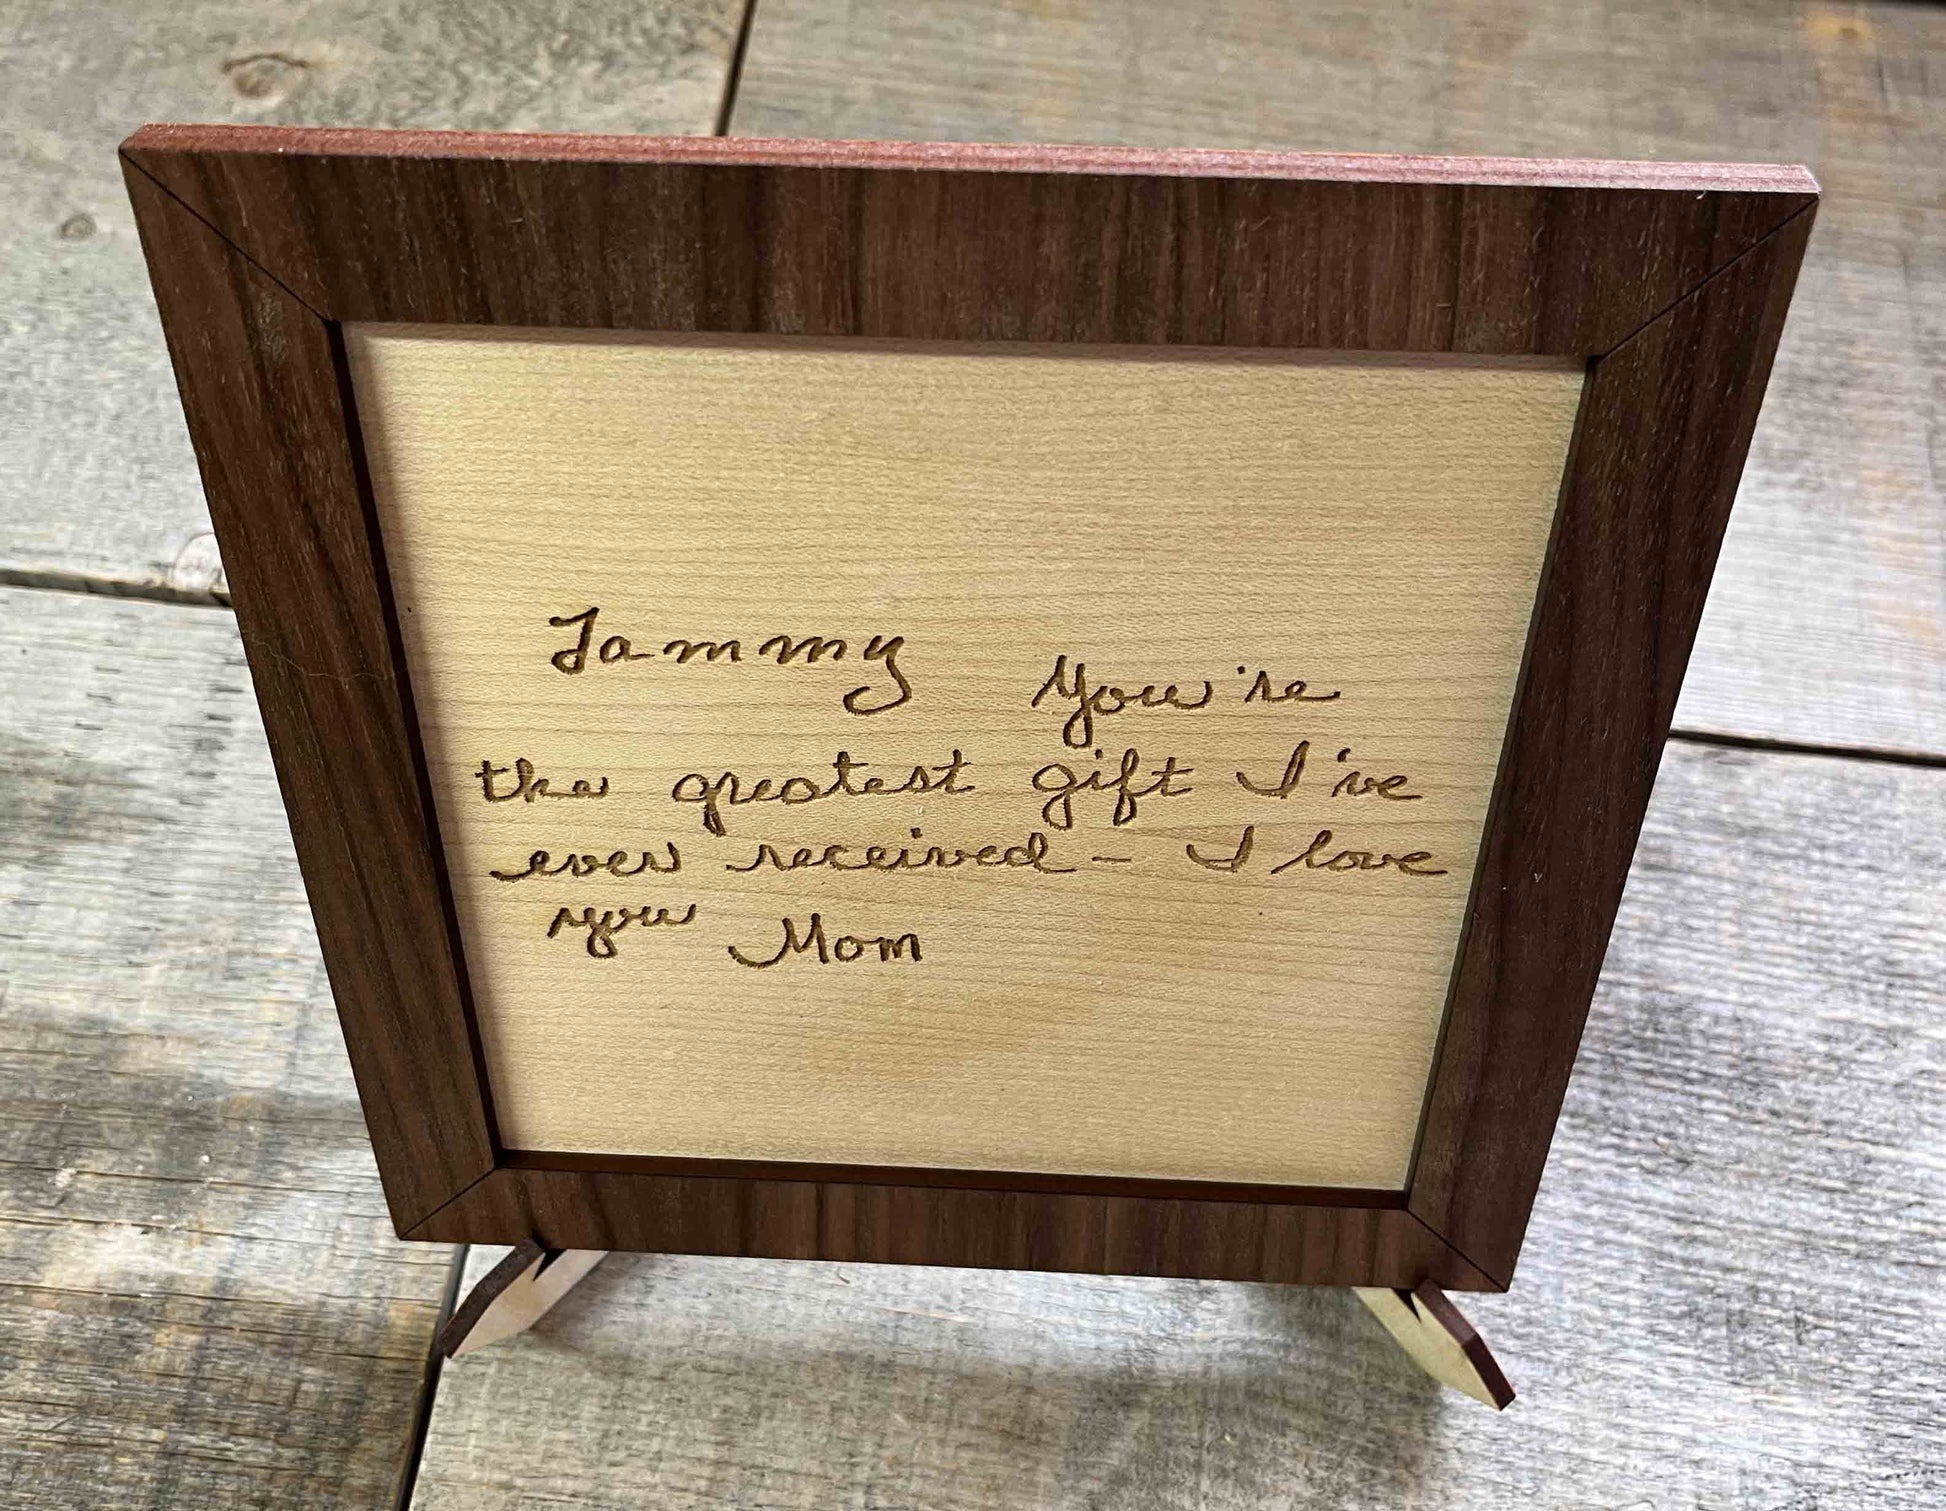 Tammy You're
the greatest gift I've
ever received - I love
you Mom